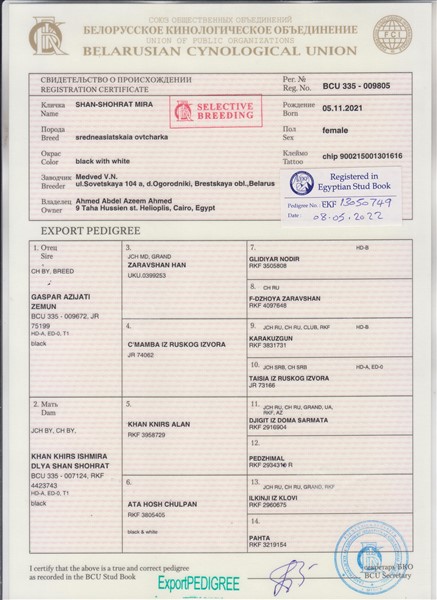 СОЮЗ ОБЩЕСТВЕННЫХ ОБЪЕДИНЕНИЙ
БЕЛОРУССКОЕ КИНОЛОГИЧЕСКОЕ ОБЪЕДИНЕНИЕ
UNION OF PUBLIC ORGANIZATIONS
BELARUSIAN CYNOLOGICAL UNION
FCI
СВИДЕТЕЛЬСТВО О ПРОИСХОЖДЕНИИ
REGISTRATION CERTIFICATE
Рег. №
Reg. No. BCU 335 - 009805
Кличка SHAN-SHOHRAT MIRA
Name
SELECTIVE
BREEDING
Рождение
Born 05.11.2021
Порода
Breed sredneasiatskaia ovtcharka
Пол female
Sex
Окрас
Color black with white
Клеймо
Tattoo chip 900215001301616
Заводчик Medved V.N.
Breeder ul.Sovetskaya 104 a, d.Ogorodniki, Brestskaya obl.,Belarus
Владелец Ahmed Abdel Azeem Ahmed
Owner 9 Taha Hussien st. Helioplis, Cairo, Egypt
Registered in
Egyptian Stud Book
Pedigree No.: EKF 13050749
Date : 08.05.2022
EXPORT PEDIGREE
1. Отец
Sire
CH BY, BREED
GASPAR AZIJATI
ZEMUN
BCU 335 - 009672, JR
75199
HD-A, ED-0, T1
black
2. Мать
Dam
JCH BY, CH BY,
KHAN KHIRS ISHMIRA
DLYA SHAN SHOHRAT
BCU 335 - 007124, RKF
4423743
HD-A, ED-0, T1
black
3.
JCH MD, GRAND
ZARAVSHAN HAN
UKU.0399253
4.
C'MAMBA IZ RUSKOG IZVORA
JR 74062
5.
KHAN KNIRS ALAN
RKF 3958729
6.
ATA HOSH CHULPAN
RKF 3805405
black & white
7. HD-B
GLIDIYAR NODIR
RKF 3505808
8. CH RU
F-DZHOYA ZARAVSHAN
RKF 4097648
9. JCH RU, CH RU, CLUB, RKF HD-B
KARAKUZGUN
RKF 3831731
10. JCH SRB, CH SRB HD-A, ED-0
TAISIA IZ RUSKOG IZVORA
JR 73166
11. JCH RU, CH RU, GRAND, UA,
RKF, AZ
DJIGIT IZ DOMA SARMATA
RKF 2916904
12.
PEDZHIMAL
RKF 2934310 R
13. JCH RU, CH RU, GRAND, RKF
ILKINJI IZ KLOVI
RKF 2960675
14.
PAHTA
RKF 3219154
I certify that the above is a true and correct pedigree
as recorded in the BCU Stud Book
ExportPEDIGREE
секретарь ВКО
BCU Secretary